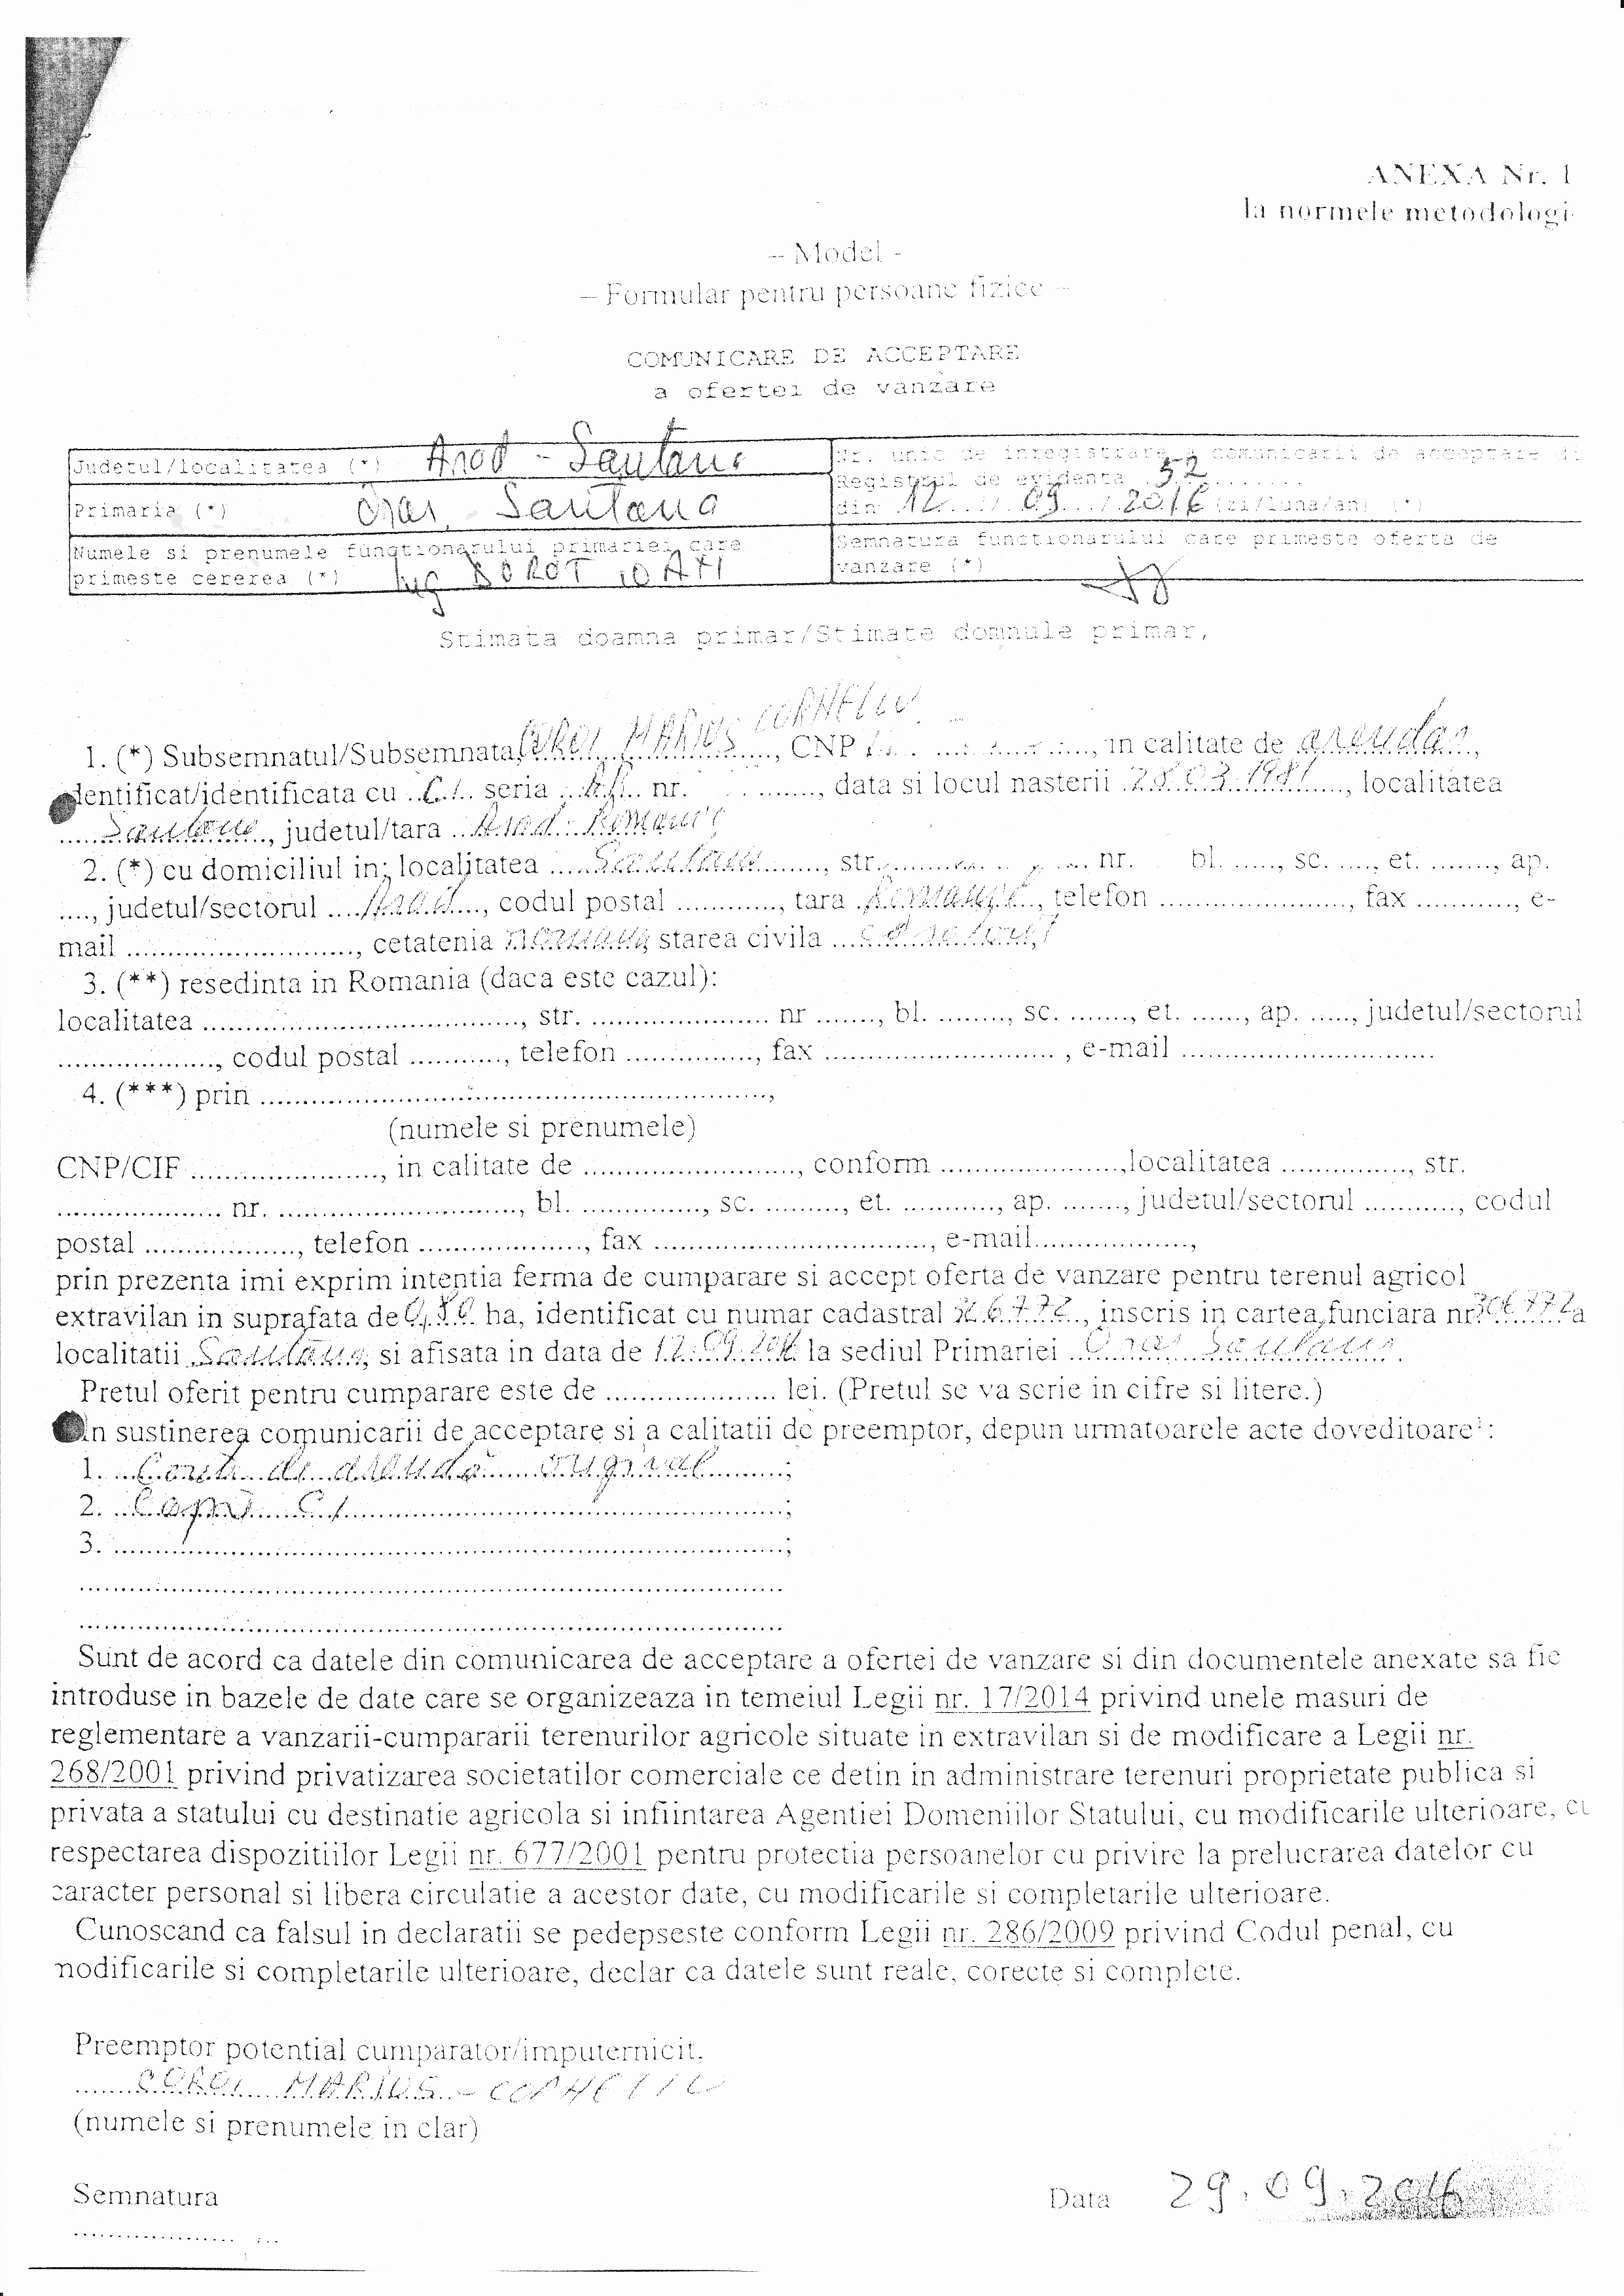 ANEXA Nr. 1
la normele metodologi
– Model -
– Formular pentru persoane fizice –
COMUNICARE DE ACCEPTARE
a ofertei de vanzare
Judetul/localitatea (*) Arad - Santana
Nr. unic de inregistrare a comunicarii de acceptare di
Registrul de evidenta 52 ........
Primaria (*) Oras Santana
din 12 / 09 / 2016 (zi/luna/an) (*)
Numele si prenumele functionarului primariei care
primeste cererea (*) ing BOROT IOAN
Semnatura functionarului care primeste oferta de
vanzare (*)
Stimata doamna primar/Stimate domnule primar,
1. (*) Subsemnatul/Subsemnata, MARIUS CORNELIU, CNP ........, in calitate de arendas,
dentificat/identificata cu C.I. seria AR nr. ........, data si locul nasterii 28.03.1981, localitatea
Santana, judetul/tara Arad - Romania
2. (*) cu domiciliul in: localitatea Santana, str. ........ nr. bl. ......, sc. ....., et. ........, ap.
...., judetul/sectorul Arad, codul postal ............, tara Romania, telefon ......................, fax ............, e-
mail ............................, cetatenia romana starea civila casatorit
3. (**) resedinta in Romania (daca este cazul):
localitatea ......................................, str. ..................... nr ......., bl. ........, sc. ......., et. ......, ap. ....., judetul/sectorul
..................., codul postal ..........., telefon ..............., fax ........................... , e-mail ..............................
4. (***) prin ............................................................,
(numele si prenumele)
CNP/CIF ......................, in calitate de ........................., conform .....................,localitatea ..............., str.
................... nr. ............................, bl. .............., sc. ........., et. ..........., ap. ......., judetul/sectorul ..........., codul
postal .................., telefon ..................., fax ................................, e-mail..................,
prin prezenta imi exprim intentia ferma de cumparare si accept oferta de vanzare pentru terenul agricol
extravilan in suprafata de ha, identificat cu numar cadastral 306772, inscris in cartea funciara nr 306772 a
localitatii Santana, si afisata in data de 12.09.2016 la sediul Primariei Oras Santana.
Pretul oferit pentru cumparare este de .................... lei. (Pretul se va scrie in cifre si litere.)
In sustinerea comunicarii de acceptare si a calitatii de preemptor, depun urmatoarele acte doveditoare¹:
1. Contr. de arenda original;
2. Copie C.I.;
3. ................................................................................;
....................................................................................
....................................................................................
Sunt de acord ca datele din comunicarea de acceptare a ofertei de vanzare si din documentele anexate sa fie
introduse in bazele de date care se organizeaza in temeiul Legii nr. 17/2014 privind unele masuri de
reglementare a vanzarii-cumpararii terenurilor agricole situate in extravilan si de modificare a Legii nr.
268/2001 privind privatizarea societatilor comerciale ce detin in administrare terenuri proprietate publica si
privata a statului cu destinatie agricola si infiintarea Agentiei Domeniilor Statului, cu modificarile ulterioare, cu
respectarea dispozitiilor Legii nr. 677/2001 pentru protectia persoanelor cu privire la prelucrarea datelor cu
caracter personal si libera circulatie a acestor date, cu modificarile si completarile ulterioare.
Cunoscand ca falsul in declaratii se pedepseste conform Legii nr. 286/2009 privind Codul penal, cu
modificarile si completarile ulterioare, declar ca datele sunt reale, corecte si complete.
Preemptor potential cumparator/imputernicit,
MARIUS - CORNELIU
(numele si prenumele in clar)
Semnatura
Data 29.09.2016